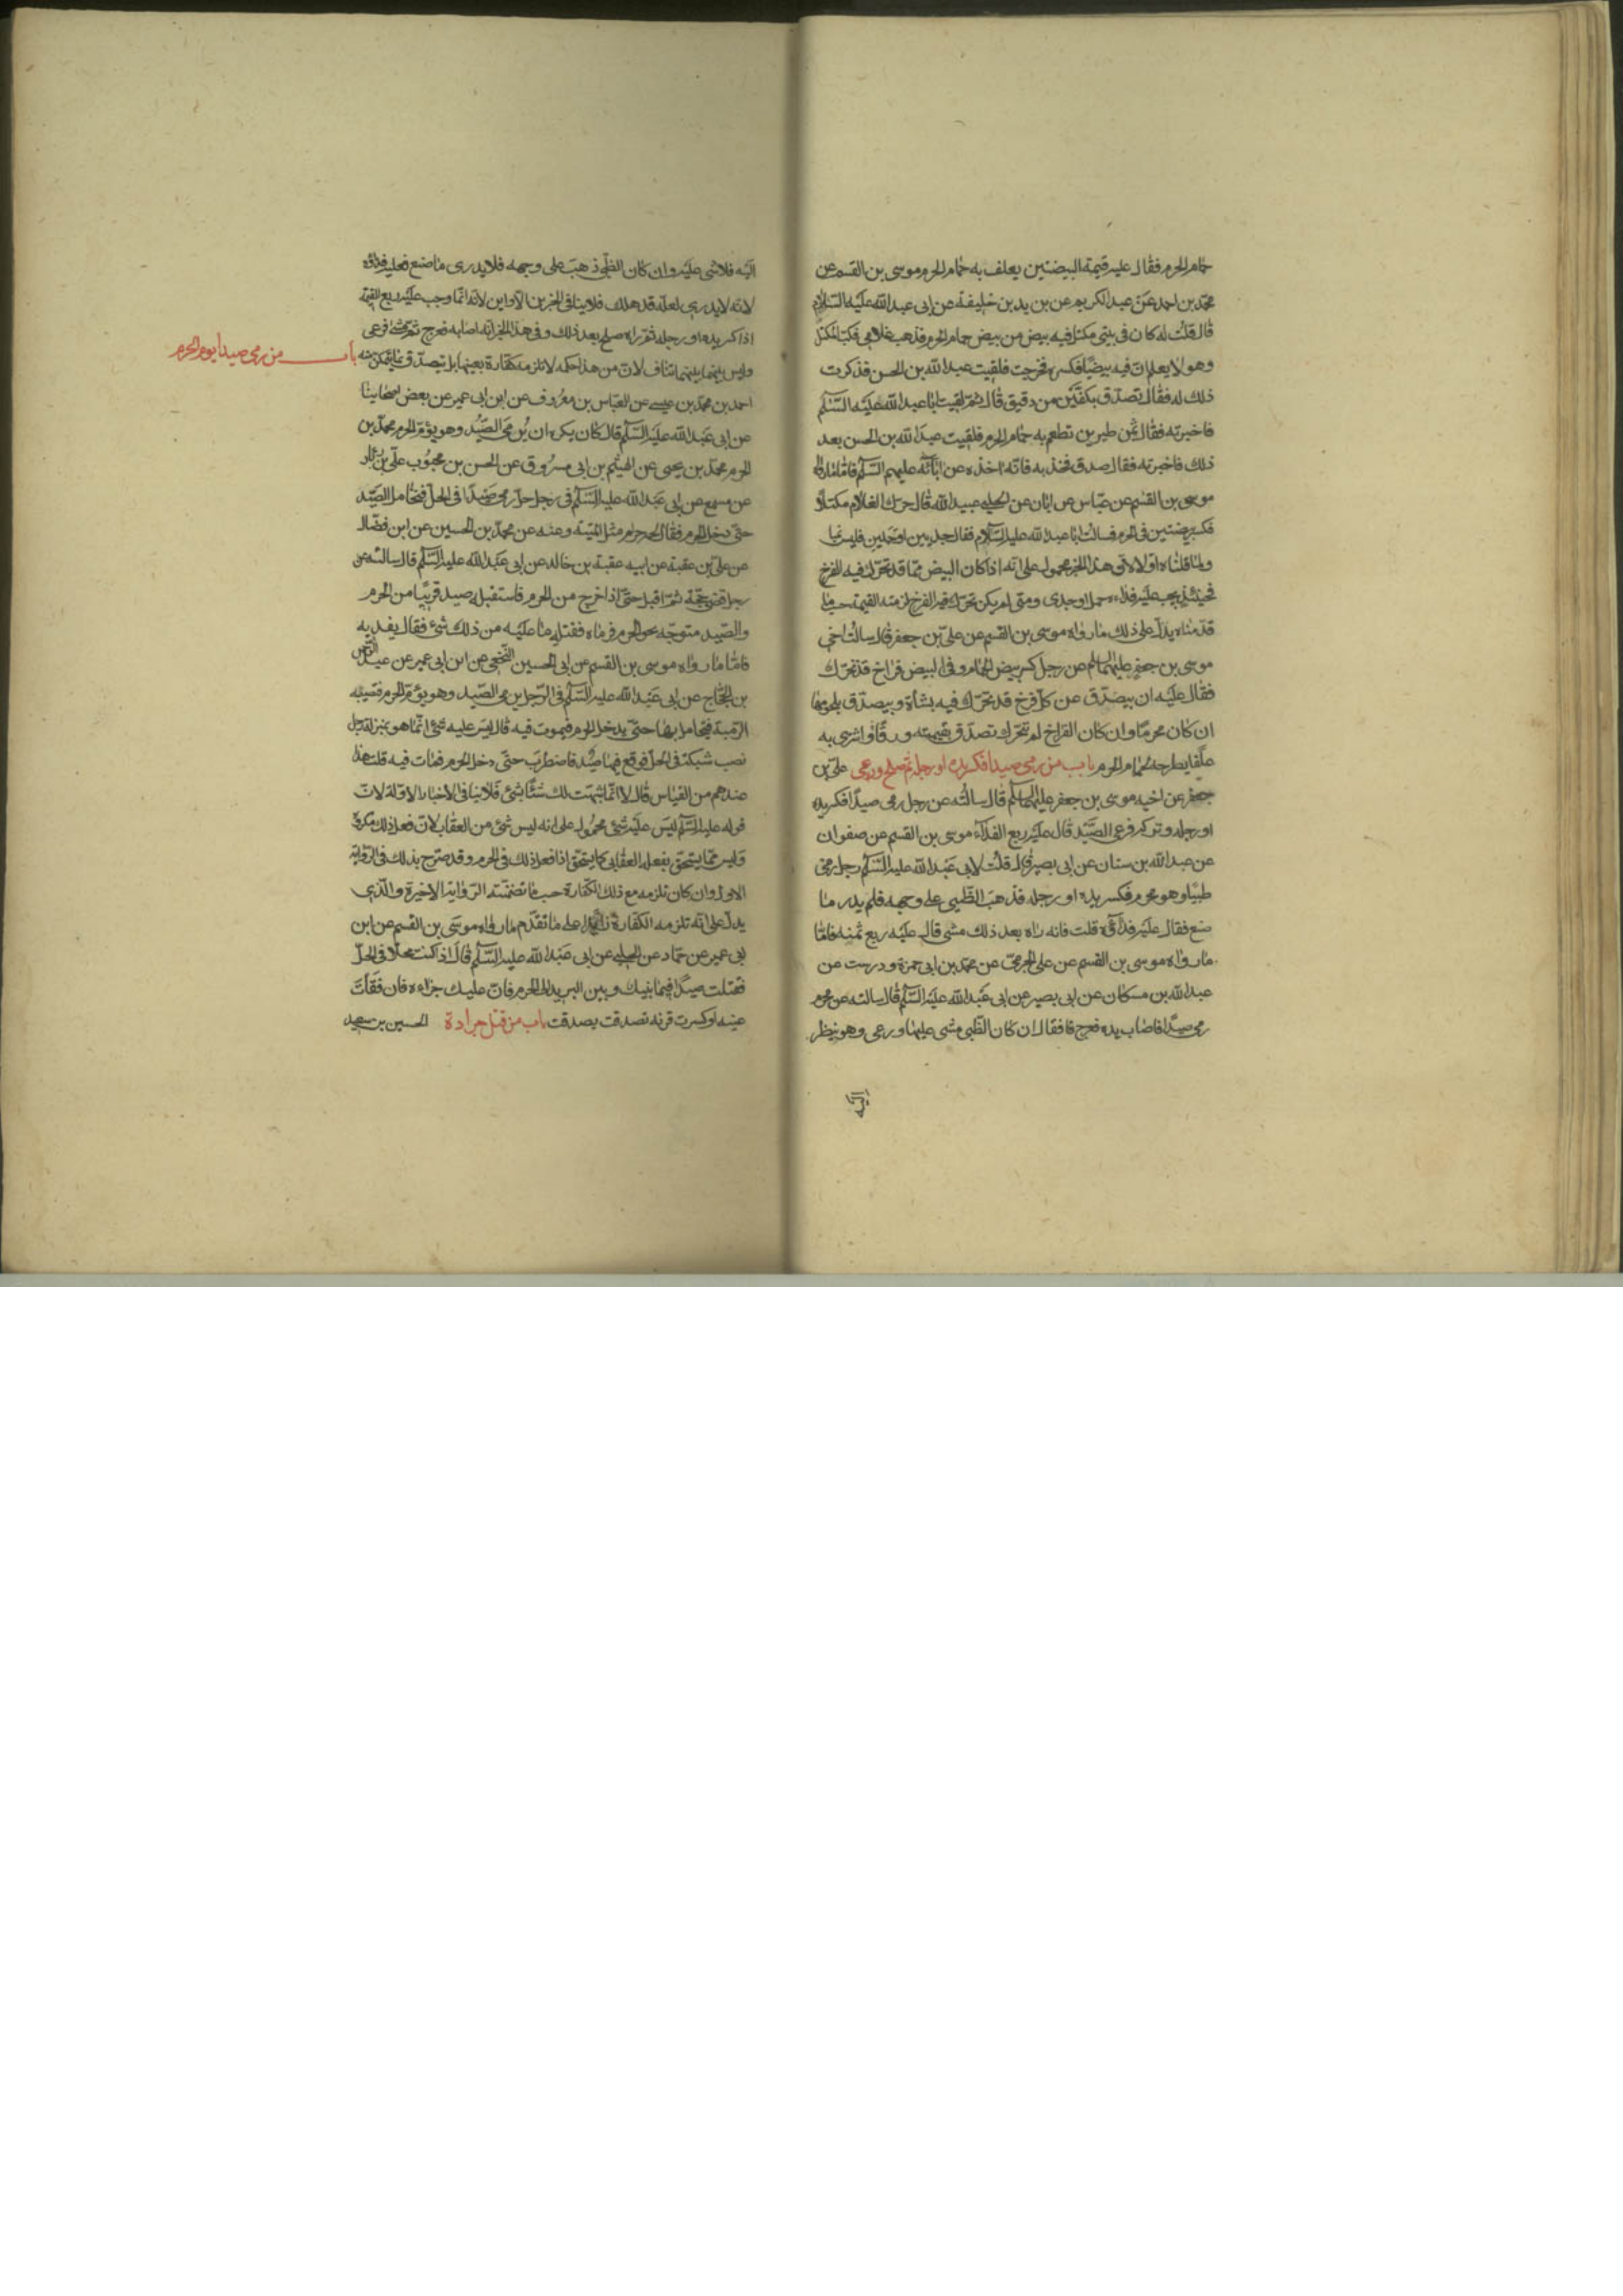 حمام الحرم فقال عليه قيمة البيضتين يعلف به حمام الحرم موسى بن القسم عن
محمد بن احمد عن عبد الكريم عن بن يد بن خليفة عن ابى عبد الله عليه السلام
قال قلت له كان فى بيتى مكتل فيه بيض من بيض حمام الحرم فذهب غلامى فكب المكتل
وهو لا يعلم ان فيه بيضا فكسره فخرجت فلقيت عبد الله بن الحسن فذكرت
ذلك له فقال تصدق بكفين من دقيق قال ثم لقيت ابا عبد الله عليه السلم
فاخبرته فقال ثمن طيرين تطعم به حمام الحرم فلقيت عبد الله بن الحسن بعد
ذلك فاخبرته فقال صدق فخذ به فانه اخذه عن ابائه عليهم السلم فاما ما رواه
موسى بن القسم عن عباس عن ابان عن الحلبى عبيد الله قال حرك الغلام مكتلا
فكسر بيضتين فى الحرم فسالت ابا عبد الله عليه السلام فقال جديين او حملين فليس ينا
ما قلناه اولا لان هذا الخبر محمول على انه اذا كان البيض مما قد تحرك فيه الفرخ
فحينئذ يجب عليه فداءه حمل او جدى ومتى لم يكن تحرك فيه الفرخ لزمته القيمة حسب ما
قدمناه يدل على ذلك ما رواه موسى بن القسم عن على بن جعفر قال سالت اخى
موسى بن جعفر عليهما السلم عن رجل كسر بيض الحمام وفى البيض فراخ قد تحرك
فقال عليه ان يتصدق عن كل فرخ قد تحرك فيه بشاة ويتصدق بلحومها
ان كان محرما وان كان الفراخ لم تتحرك تصدق بقيمته ورقا واشترى به
علفا يطرحه لحمام الحرم باب من رمى صيدا فكسر يده او رجله ثم صلح ورعى على بن
جعفر عن اخيه موسى بن جعفر عليهما السلم قال سالته عن رجل رمى صيدا فكسر يده
او رجله وتركه فرعى الصيد قال عليه ربع الفداء موسى بن القسم عن صفوان
عن عبد الله بن سنان عن ابى بصير قال قلت لابى عبد الله عليه السلم رجل رمى
ظبيا وهو محرم فكسر يده او رجله فذهب الظبى على وجهه فلم يدر ما
صنع فقال عليه فداؤه قلت فانه راه بعد ذلك مشى قال عليه ربع ثمنه فاما
ما رواه موسى بن القسم عن على الجرمى عن محمد بن ابى حمزة ودرست عن
عبد الله بن مسكان عن ابى بصير عن ابى عبد الله عليه السلم قال سالته عن محرم
رمى صيدا فاصاب يده فعرج فا فقال ان كان الظبى مشى عليها ورعى وهو ينظر
اليه
اليه فلا شى عليه وان كان الظبى ذهب على وجهه فلا يدرى ما صنع فعليه فداؤه
لانه لا يدرى لعله قد هلك فلا ينافى الخبرين الاولين لانه انما وجب عليه ربع القيمة
اذا كسر يده او رجله ثم راه صلح بعد ذلك وفى هذا الخبر انه اصابه فعرج ثم مشى ورعى
وليس بينهما تناف لان من هذا حكمه لا تلزمه كفارة بعينها بل يتصدق بما يتمكن منه
باب من رمى صيدا يوم الحرم
احمد بن محمد بن عيسى عن العباس بن معروف عن ابن ابى عمير عن بعض اصحابنا
عن ابى عبد الله عليه السلم قال كان يكره ان يرمى الصيد وهو يؤم الحرم محمد بن
الحرم محمد بن يحيى عن الهيثم بن ابى مسروق عن الحسن بن محبوب على بن رئاب
عن مسمع عن ابى عبد الله عليه السلم فى رجل حل رمى صيدا فى الحل فتحامل الصيد
حتى دخل الحرم فقال لحمه حرام مثل الميتة وعنه عن محمد بن الحسين عن ابن فضال
عن على بن عقبة عن ابيه عقبة بن خالد عن ابى عبد الله عليه السلم قال سالته عن
رجل قضى حجه ثم اقبل حتى اذا خرج من الحرم فاستقبله صيد قريبا من الحرم
والصيد متوجه نحو الحرم فرماه فقتله ما عليه من ذلك شئ فقال يفديه
فاما ما رواه موسى بن القسم عن ابى الحسين النخعى عن ابن ابى عمير عن عبد الرحمن
بن الحجاج عن ابى عبد الله عليه السلم فى الرجل يرمى الصيد وهو يؤم الحرم فتصيبه
الرمية فيتحامل بها حتى يدخل الحرم فيموت فيه قال ليس عليه شئ انما هو بمنزلة رجل
نصب شبكة فى الحل فوقع فيها صيد فاضطرب حتى دخل الحرم فمات فيه قلت هذا
عندهم من القياس قال لا انما شبهت لك شئا بشئ فلا ينافى الاخبار الاولة لان
قوله عليه السلم ليس عليه شئ محمول على انه ليس شئ من العقاب لان فعل ذلك مكروه
وليس مما يستحق بفعله العقاب كما يستحق اذا فعل ذلك فى الحرم وقد صرح بذلك فى الرواية
الاولى وان كان تلزمه مع ذلك الكفارة حسب ما تضمنته الرواية الاخيرة والذى
يدل على انه تلزمه الكفارة زائدا على ما تقدم ما رواه موسى بن القسم عن ابن
ابى عمير عن حماد عن الحلبى عن ابى عبد الله عليه السلم قال اذا كنت محلا فى الحل
فقتلت صيدا فيما بينك وبين البريد الى الحرم فان عليك جزاءه فان فقأت
عينه او كسرت قرنه تصدقت بصدقت باب من قتل جرادة الحسين بن سعيد